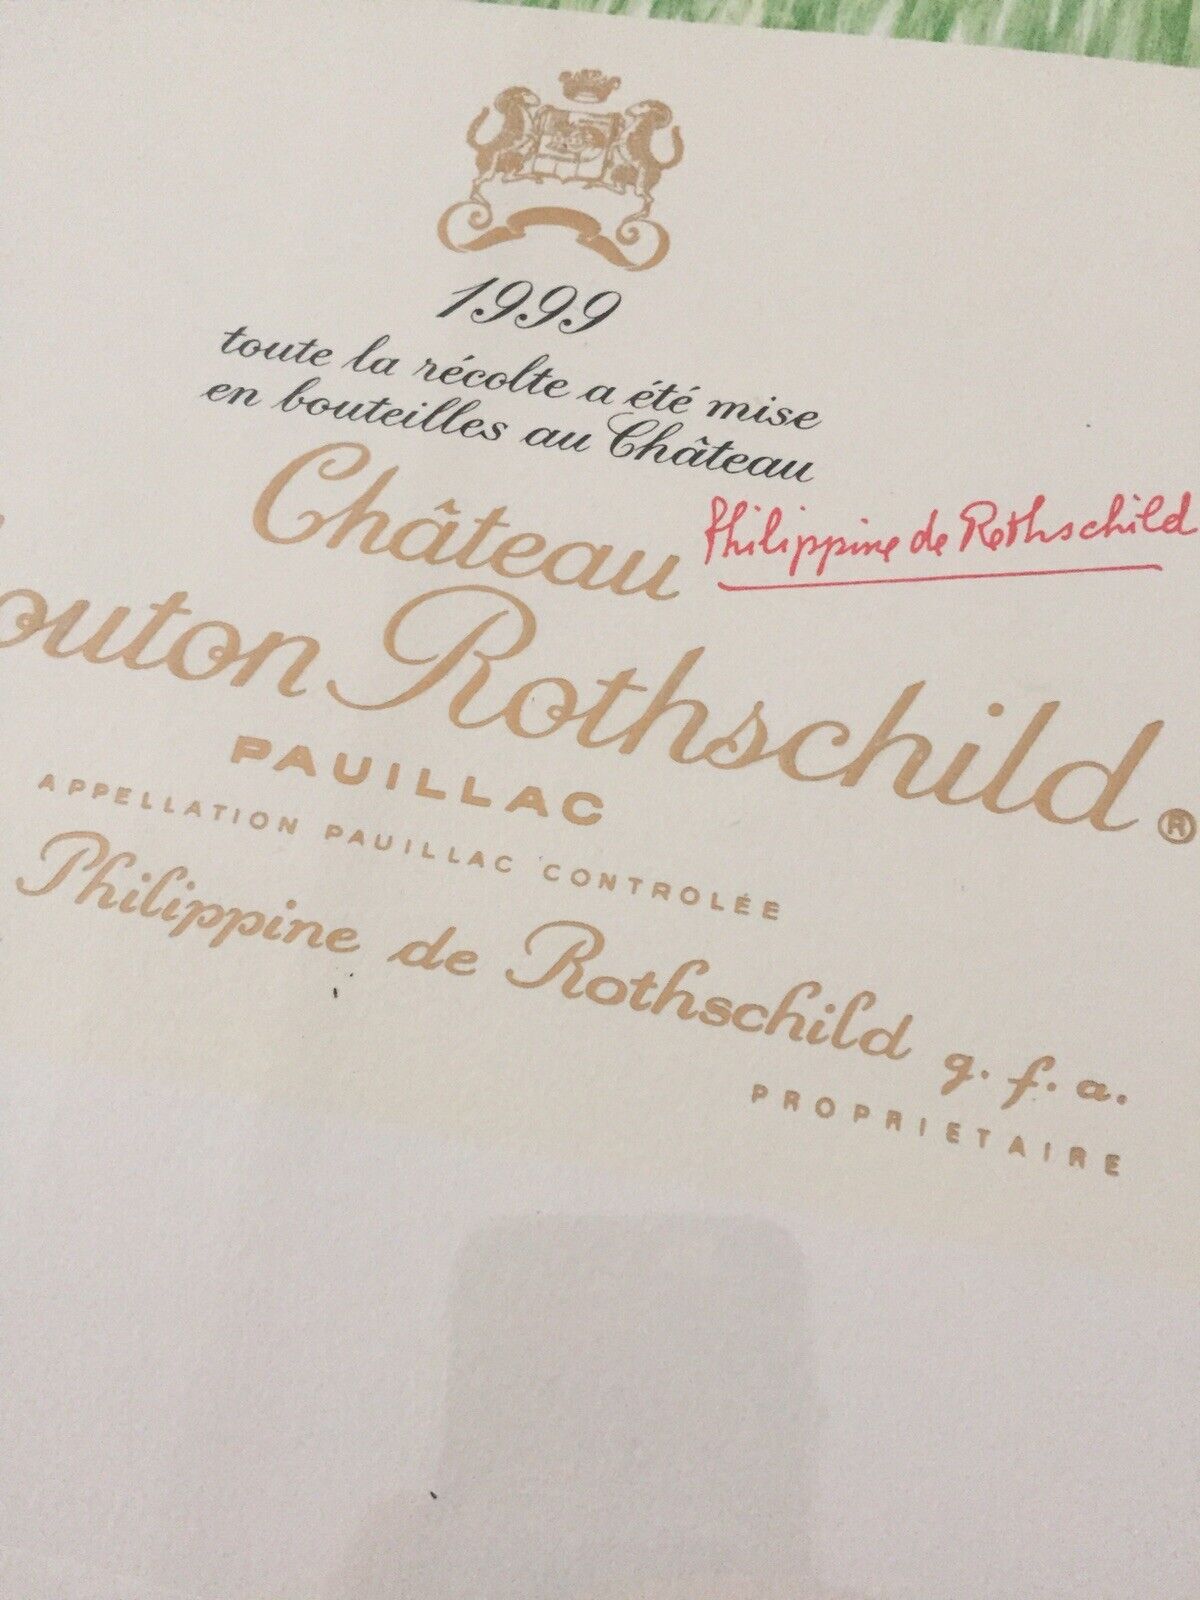 1999
toute la récolte a été mise
en bouteilles au Château
Château
Philippine de Rothschild
outon Rothschild®
PAUILLAC
APPELLATION PAUILLAC CONTROLÉE
Philippine de Rothschild g. f. a.
PROPRIETAIRE